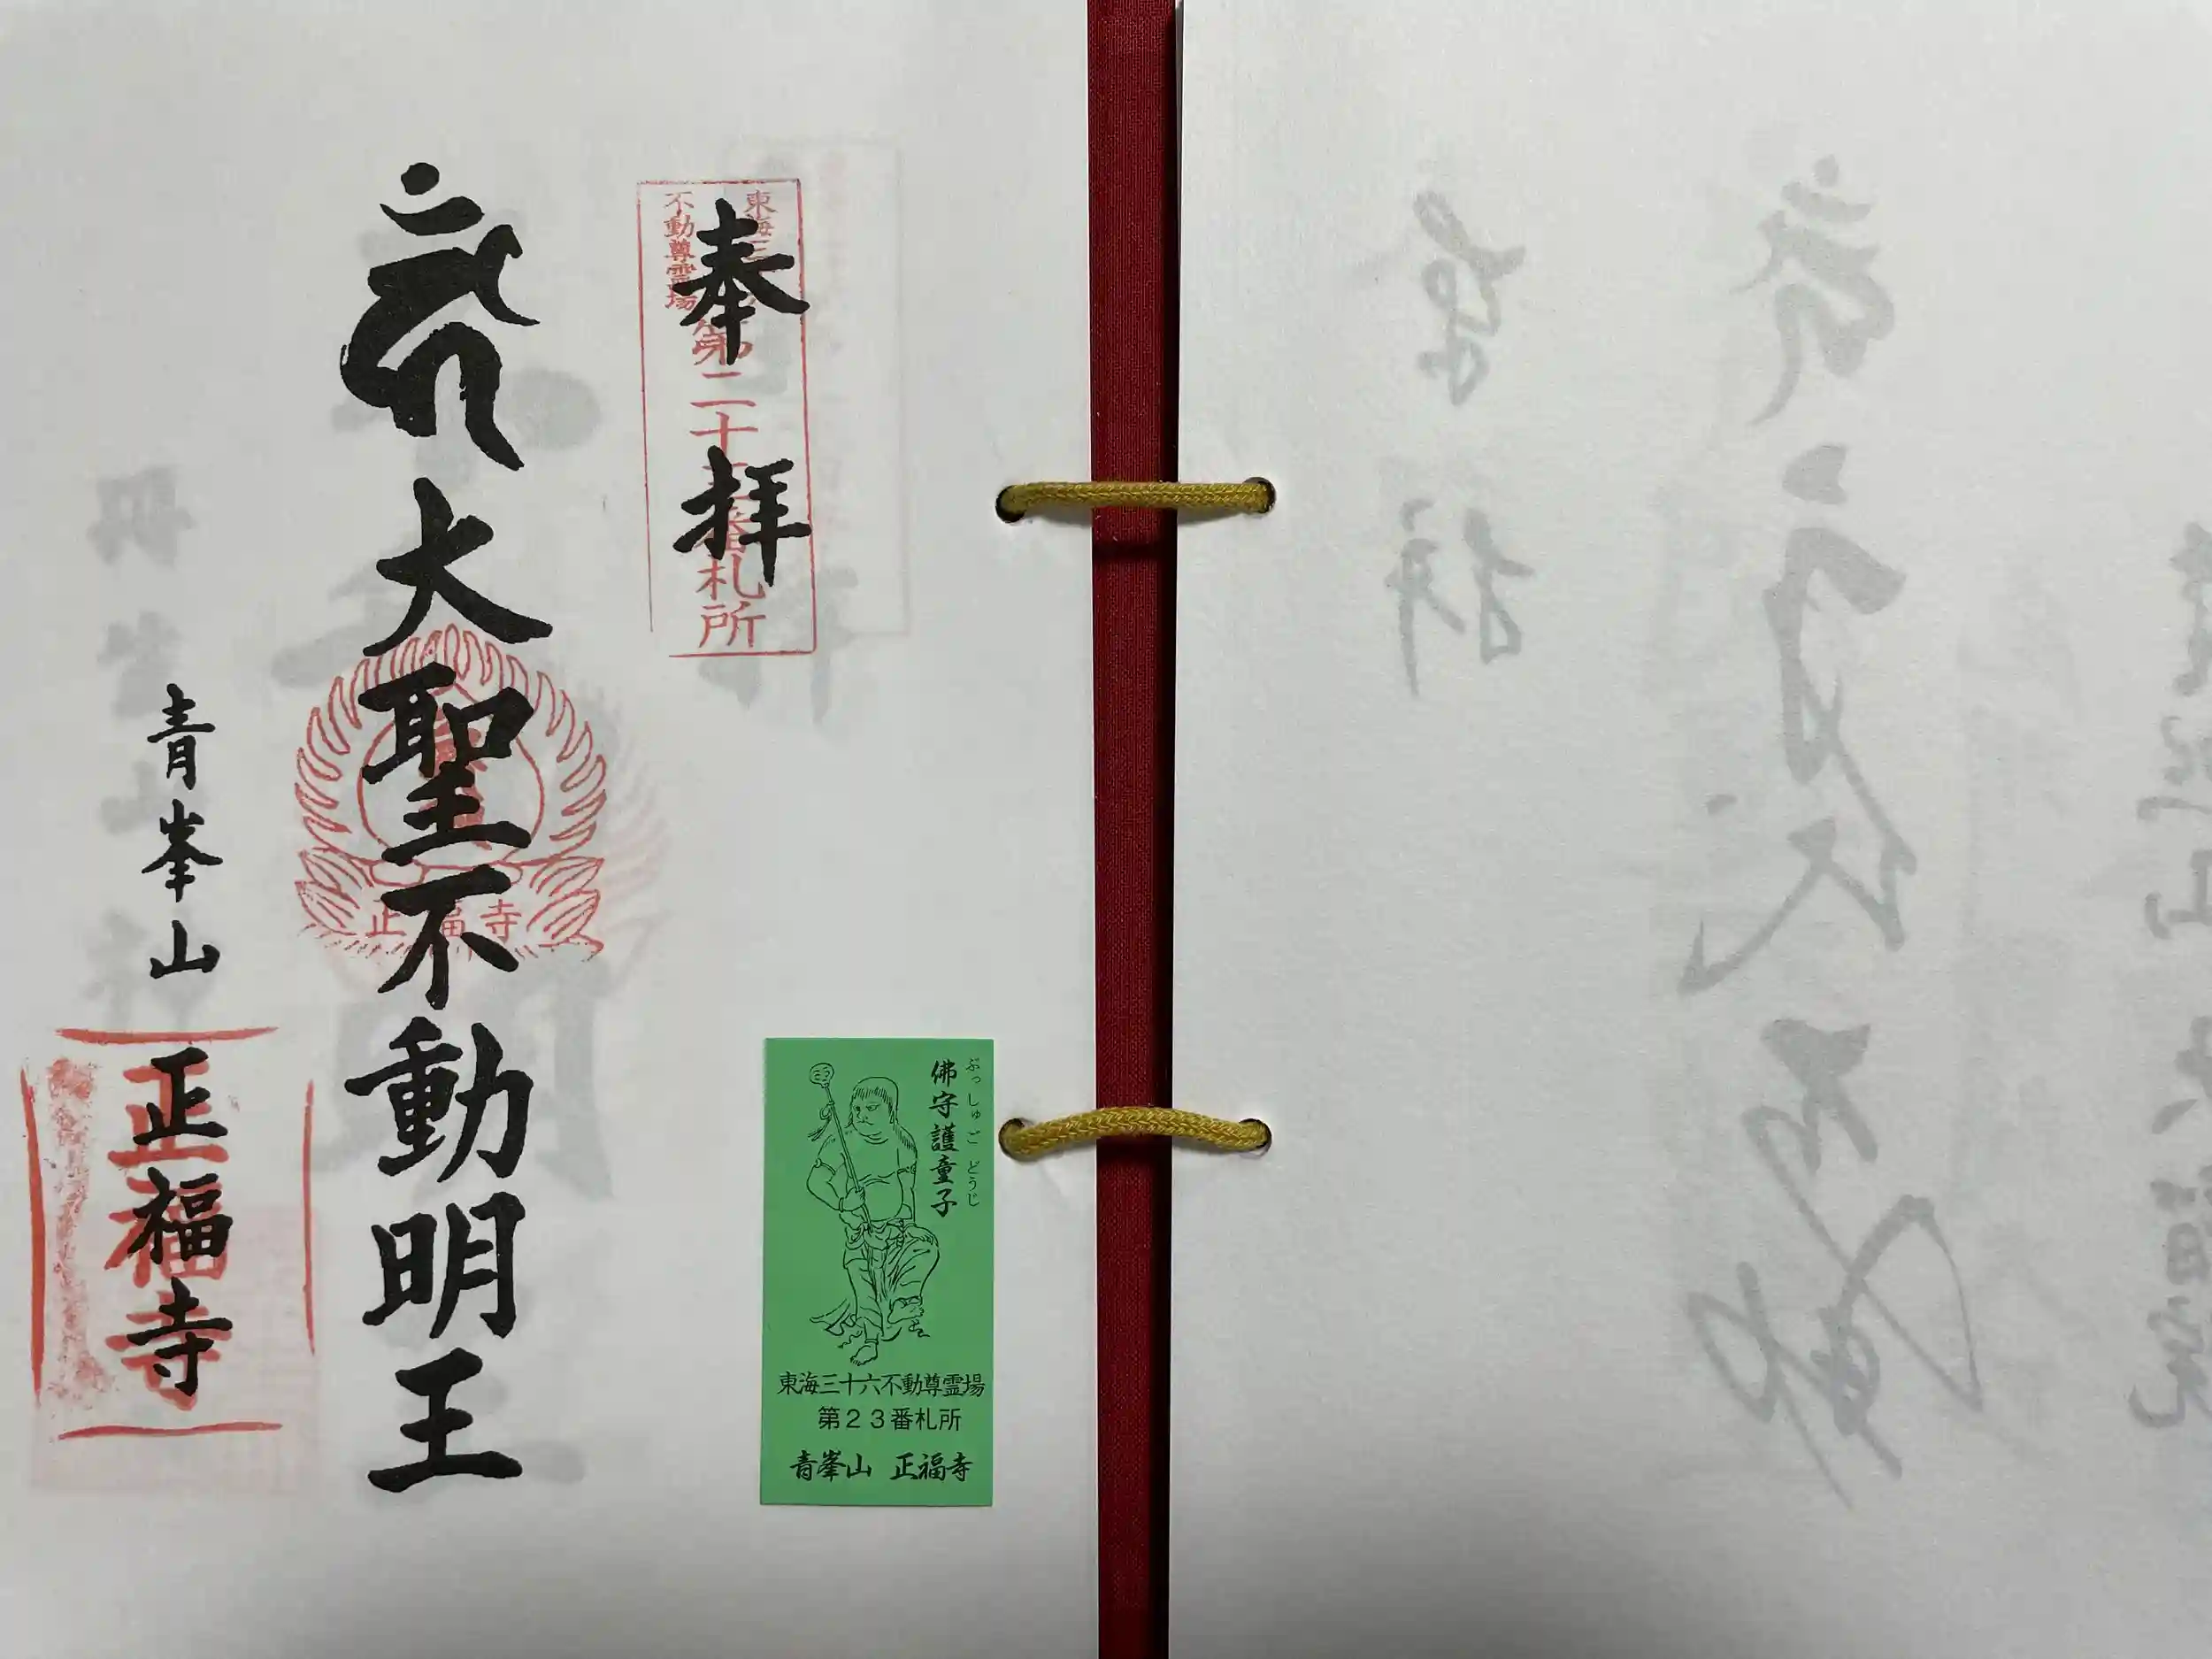 奉拝
東海三
不動尊霊場
第二十三番札所
大聖不動明王
正福寺
青峯山
正福寺
正福寺
佛守護童子
ぶっしゅご どうじ
東海三十六不動尊霊場
第23番札所
青峯山 正福寺